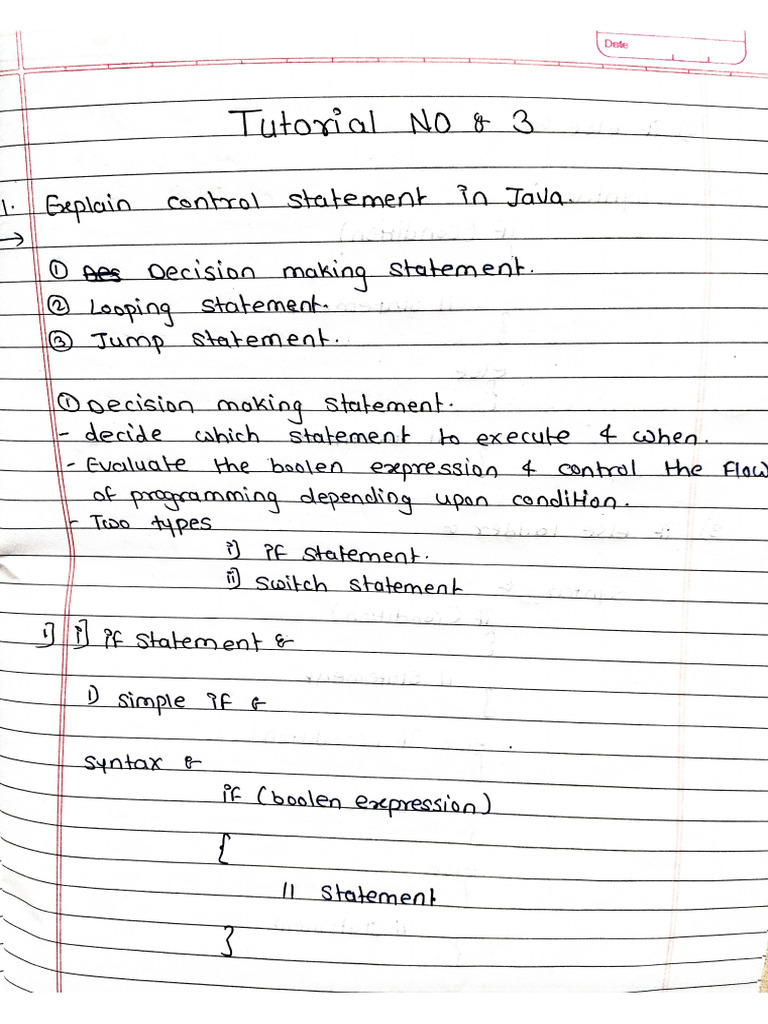 Date
Tutorial NO & 3
1. Explain control statement in Java.
→
① Decision making statement.
② Looping statement.
③ Jump statement.
① Decision making statement.
- decide which statement to execute & when.
- Evaluate the boolen expression & control the flow
of programming depending upon condition.
- Two types
i] if statement.
ii] switch statement
1] i] if statement &
1) simple if &
syntax &
if (boolen expression)
{
// statement
}